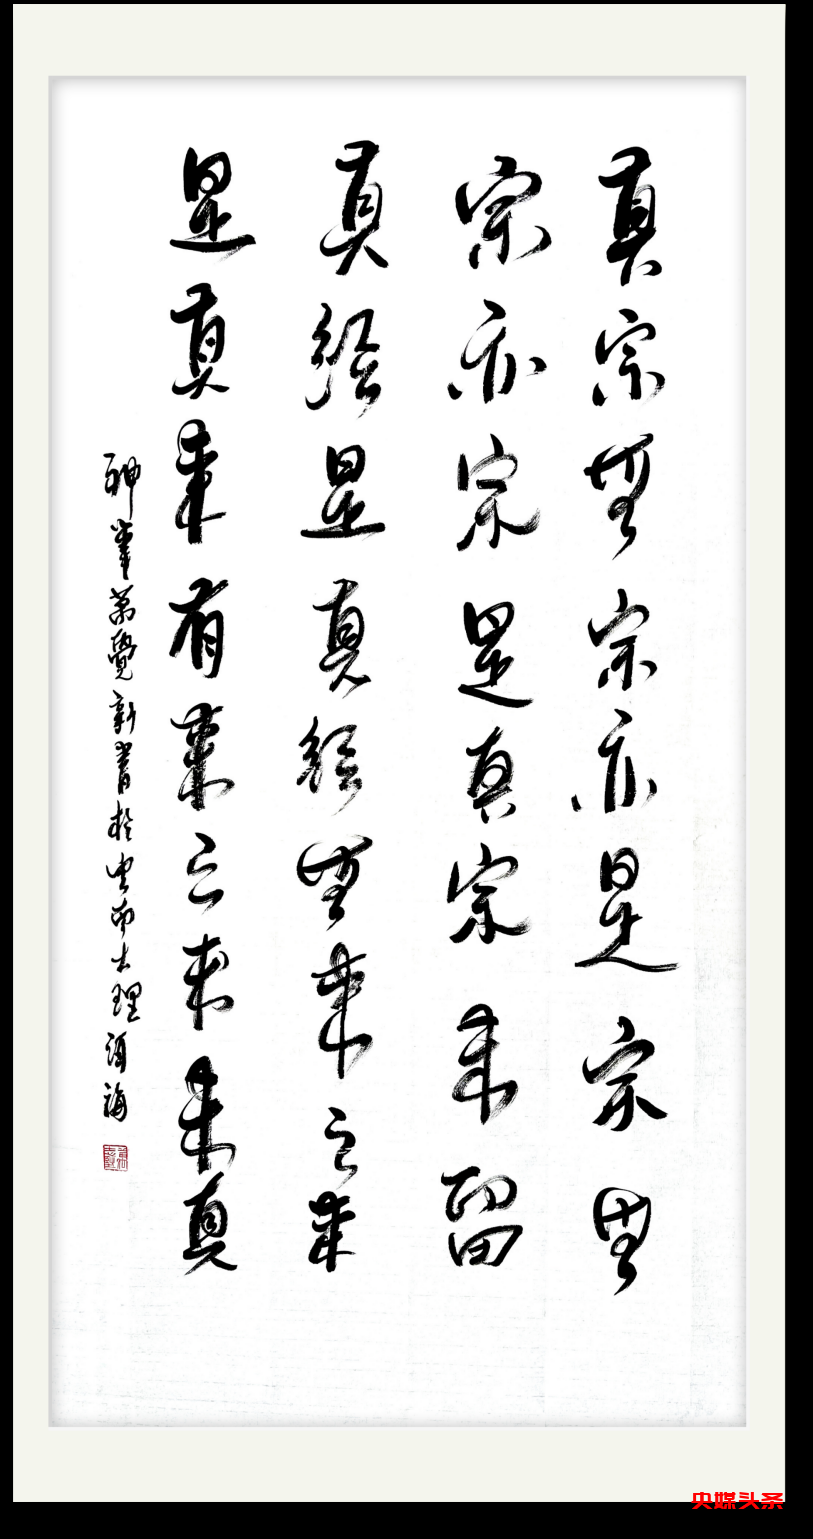 真宗無宗亦是宗無
宗亦宗是真宗来留
真經是真經無来之来
是真来有来之来真
神筆覺新書於雲南大理洱海
央媒头条